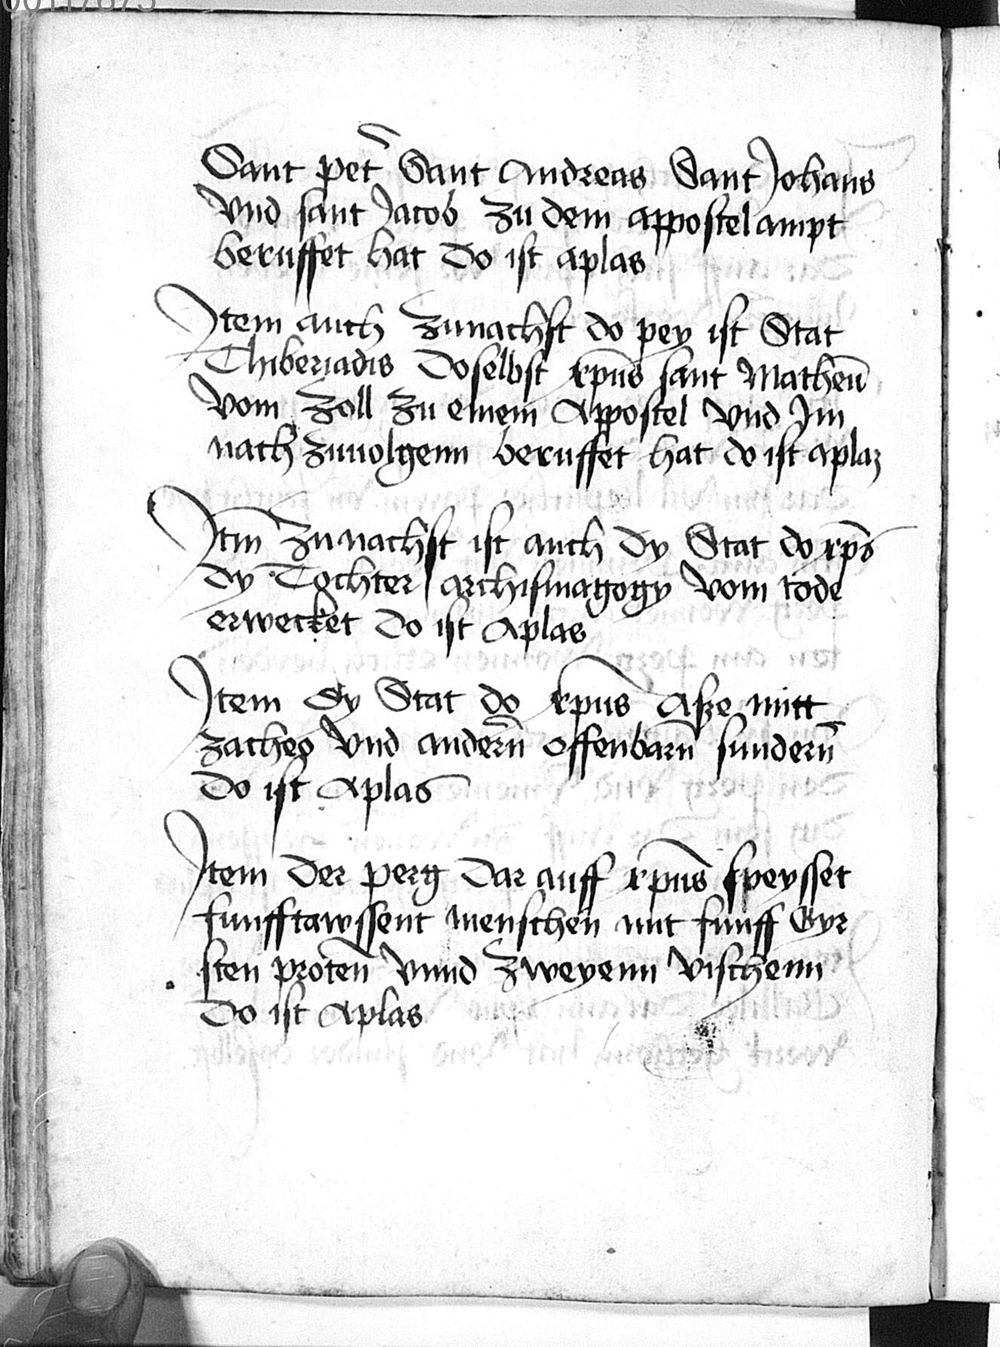 Sant pet͛ Sant Andreas Sant Johans
vnd sant Jacob zu dem appostel ampt
beruffet hat Do ist aplas
Item auch zunachst do pey ist Stat
Thiberiadis Doselbst xp̄us sant Matheū
vom zoll zu einem Appostel vnd Im
nach zuuolgenn beruffet hat do ist aplaz
Itm̄ zunachst ist auch dy Stat do xp̄s
dy Tochter archisinagogy vom tode
erwecket Do ist Aplas
Item Dy Stat do xp̄us Asze mitt
zacheo vnd andern̄ offenbarn̄ sundern̄
Do ist Aplas
Item Der perg Dar auff xp̄us speysset
funfftawssent menschen̄ mit funff Gyr
sten proten̄ vnnd zweyenn vischenn
Do ist Aplas